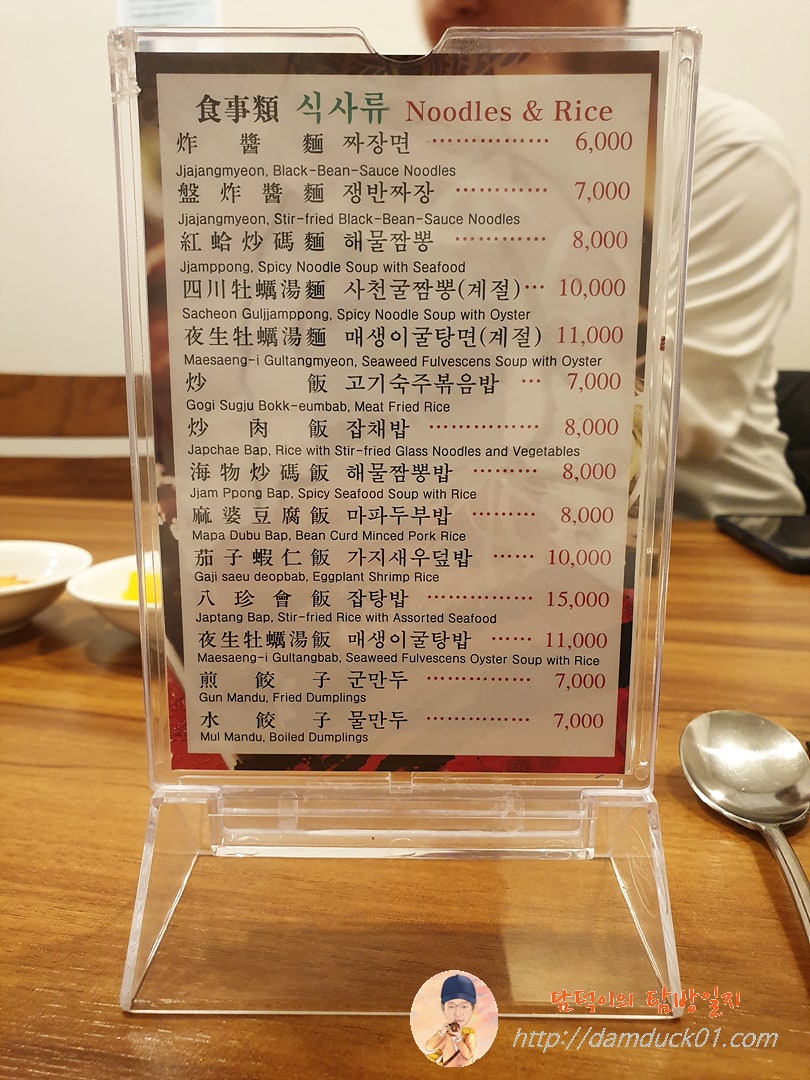 食事類 식사류 Noodles & Rice
炸醬麵 짜장면 ················ 6,000
Jjajangmyeon, Black-Bean-Sauce Noodles
盤炸醬麵 쟁반짜장 ············ 7,000
Jjajangmyeon, Stir-fried Black-Bean-Sauce Noodles
紅蛤炒碼麵 해물짬뽕 ············ 8,000
Jjamppong, Spicy Noodle Soup with Seafood
四川牡蠣湯麵 사천굴짬뽕(계절)··· 10,000
Sacheon Guljjamppong, Spicy Noodle Soup with Oyster
夜生牡蠣湯麵 매생이굴탕면(계절) 11,000
Maesaeng-i Gultangmyeon, Seaweed Fulvescens Soup with Oyster
炒飯 고기숙주볶음밥 ··· 7,000
Gogi Sugju Bokk-eumbab, Meat Fried Rice
炒肉飯 잡채밥 ··············· 8,000
Japchae Bap, Rice with Stir-fried Glass Noodles and Vegetables
海物炒碼飯 해물짬뽕밥 ········· 8,000
Jjam Ppong Bap, Spicy Seafood Soup with Rice
麻婆豆腐飯 마파두부밥 ········· 8,000
Mapa Dubu Bap, Bean Curd Minced Pork Rice
茄子蝦仁飯 가지새우덮밥 ······ 10,000
Gaji saeu deopbab, Eggplant Shrimp Rice
八珍會飯 잡탕밥 ··············· 15,000
Japtang Bap, Stir-fried Rice with Assorted Seafood
夜生牡蠣湯飯 매생이굴탕밥 ······ 11,000
Maesaeng-i Gultangbab, Seaweed Fulvescens Oyster Soup with Rice
煎餃子 군만두 ··············· 7,000
Gun Mandu, Fried Dumplings
水餃子 물만두 ··············· 7,000
Mul Mandu, Boiled Dumplings
담덕이의 탐방일지
http://damduck01.com